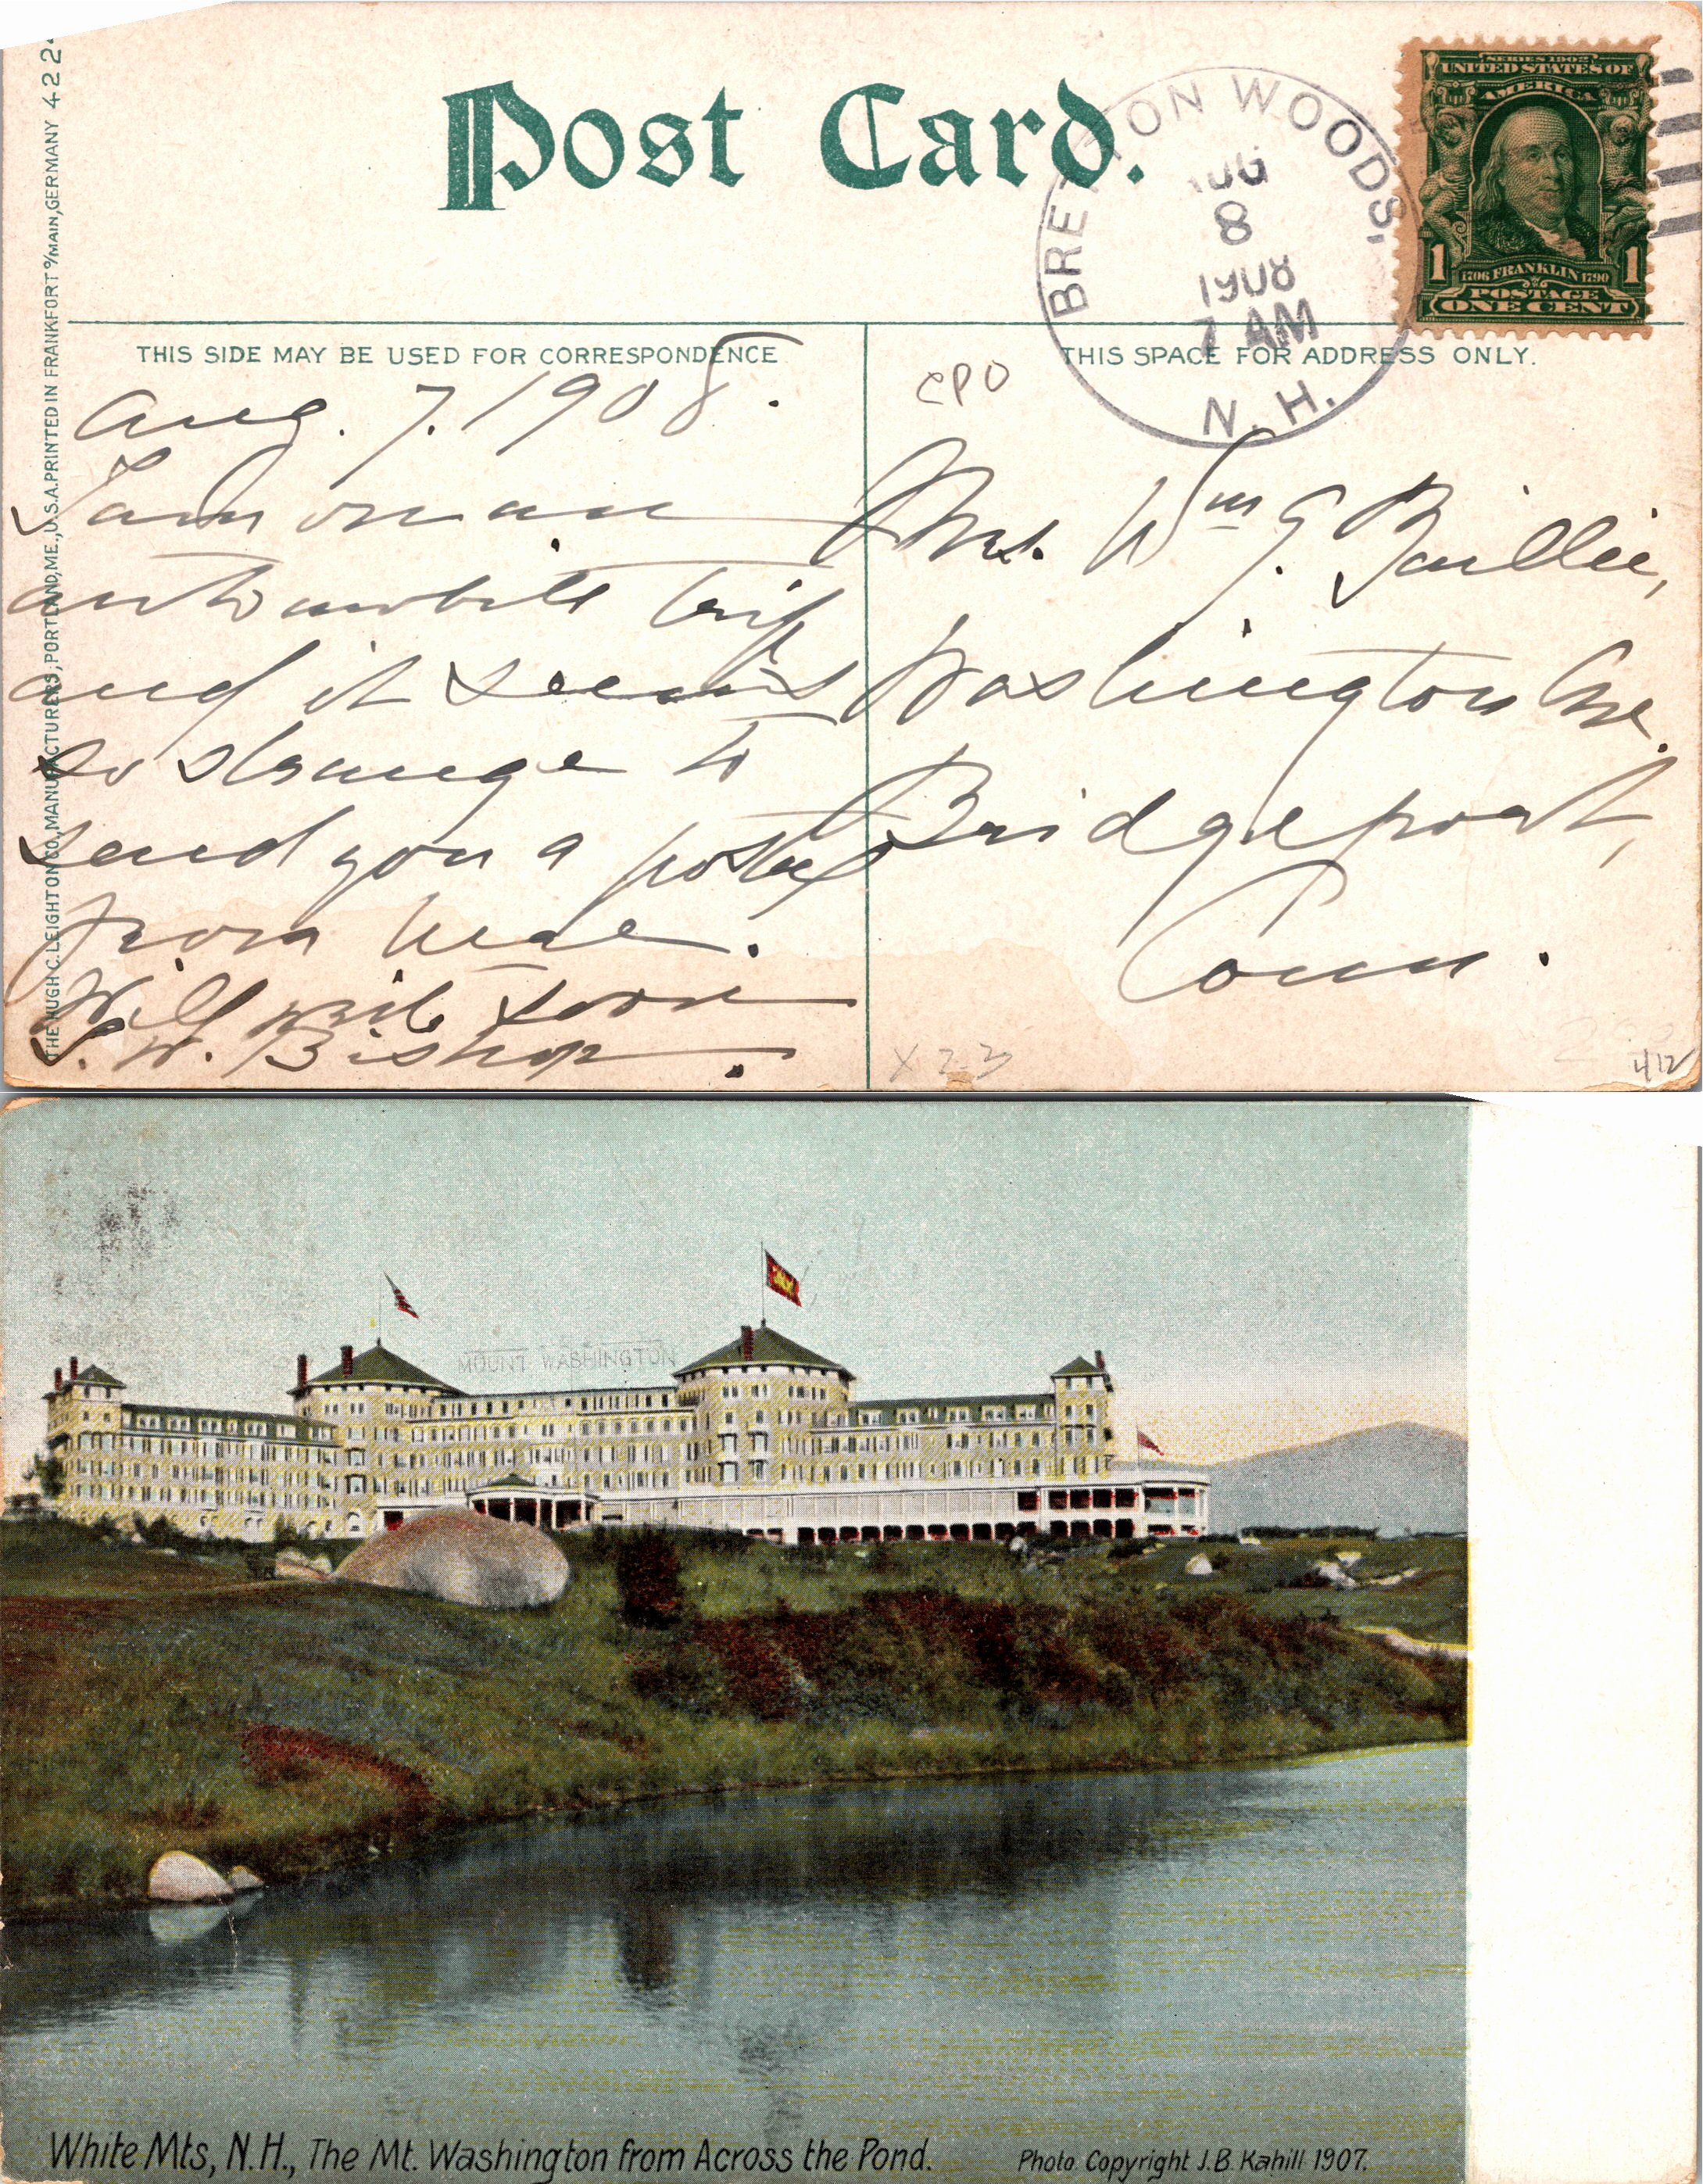 Post Card.
BRETTON WOODS,
AUG
8
1908
7 AM
N. H.
SERIES 1902
UNITED STATES OF
AMERICA
1 1706 FRANKLIN 1790 1
POSTAGE
ONE CENT
THE HUGH C. LEIGHTON CO., MANUFACTURERS, PORTLAND, ME., U.S.A. PRINTED IN FRANKFORT o/MAIN, GERMANY 422
THIS SIDE MAY BE USED FOR CORRESPONDENCE
Aug. 7. 1908.
I am on an
automobile trip
and it seems
so strange to
send you a postal
from here.
Will write soon
W. Bishop.
CPO
THIS SPACE FOR ADDRESS ONLY.
Mrs. Wm G. Baillie,
Washington Ave.
Bridgeport,
Conn.
X23
412
MOUNT WASHINGTON
White Mts, N.H., The Mt. Washington from Across the Pond.
Photo Copyright J.B. Kahill 1907.